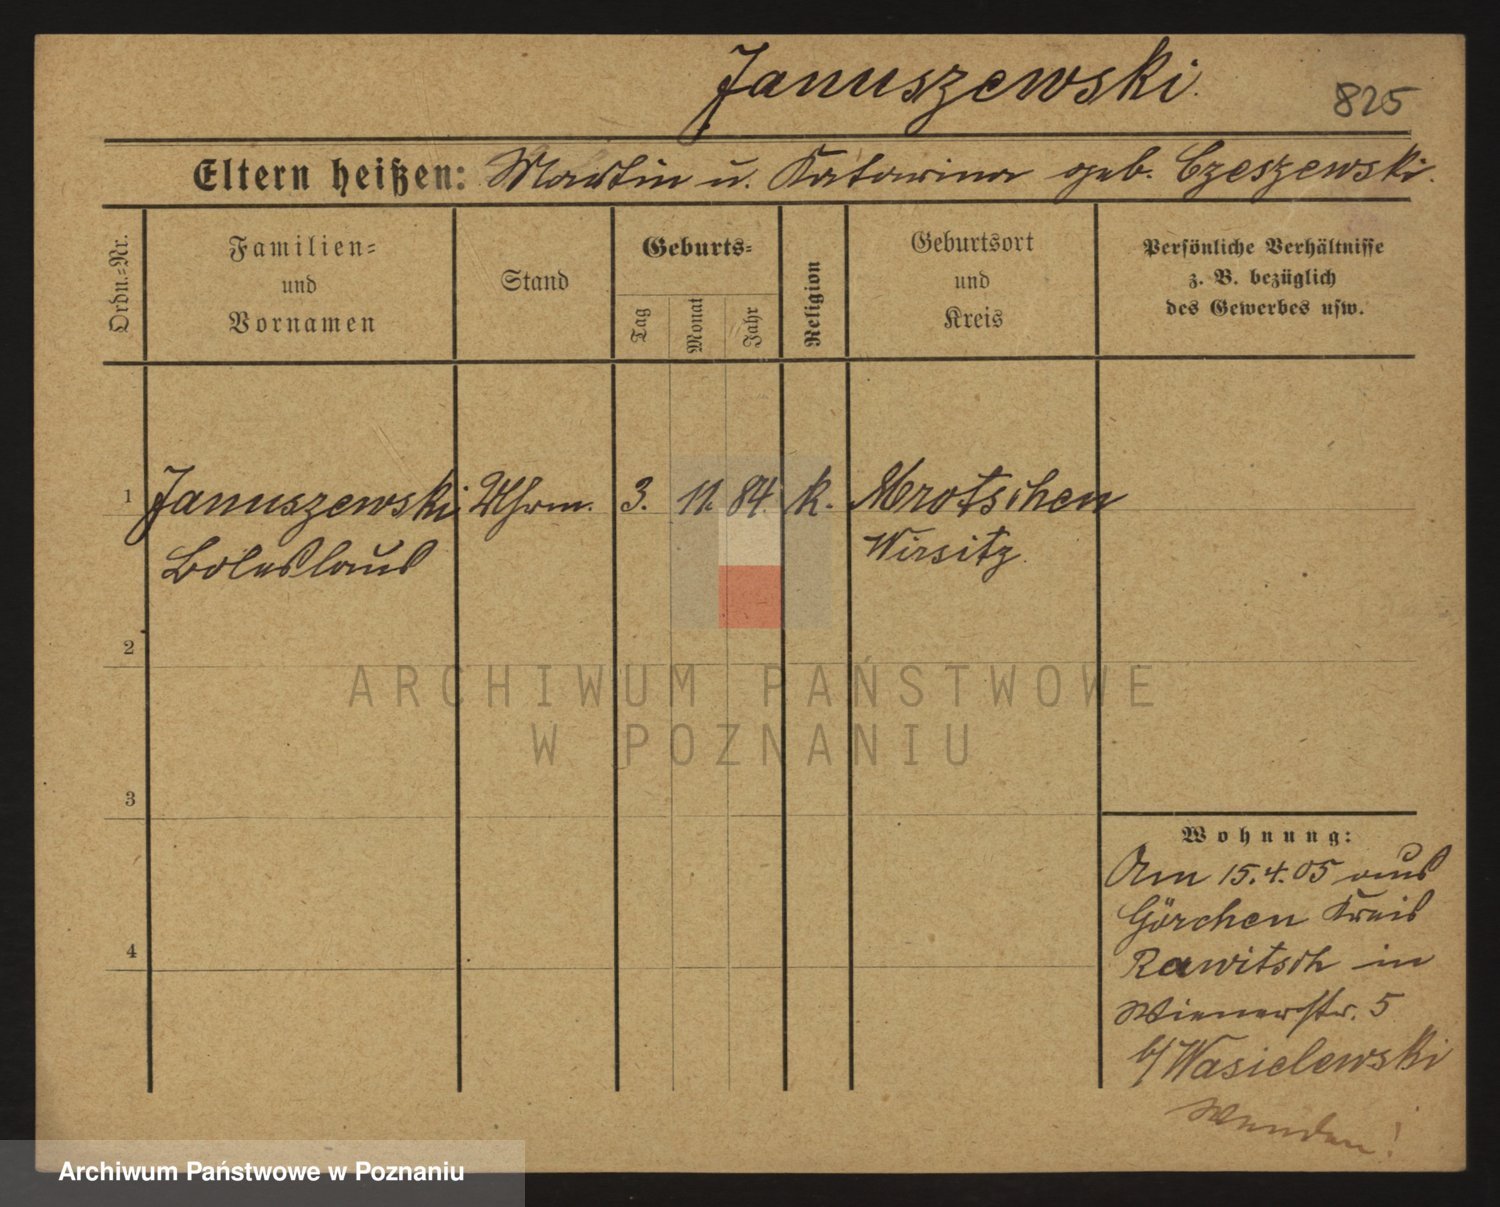 Januszewski.
825
Eltern heißen: Martin u. Katarina geb. Czeszewski.
Ordn.=Nr.
Familien=
und
Vornamen
Stand
Geburts=
Tag
Monat
Jahr
Religion
Geburtsort
und
Kreis
Persönliche Verhältnisse
z. B. bezüglich
des Gewerbes usw.
1 Januszewski 3. 11. 84. k. Mrotschen
Boleslaus Wirsitz.
2
3
4
Wohnung:
Am 15.4.05 aus
Görchen Kreis
Rawitsch in
Wienerstr. 5
b/ Wasielewski
Wenden!
ARCHIWUM PAŃSTWOWE
W POZNANIU
Archiwum Państwowe w Poznaniu